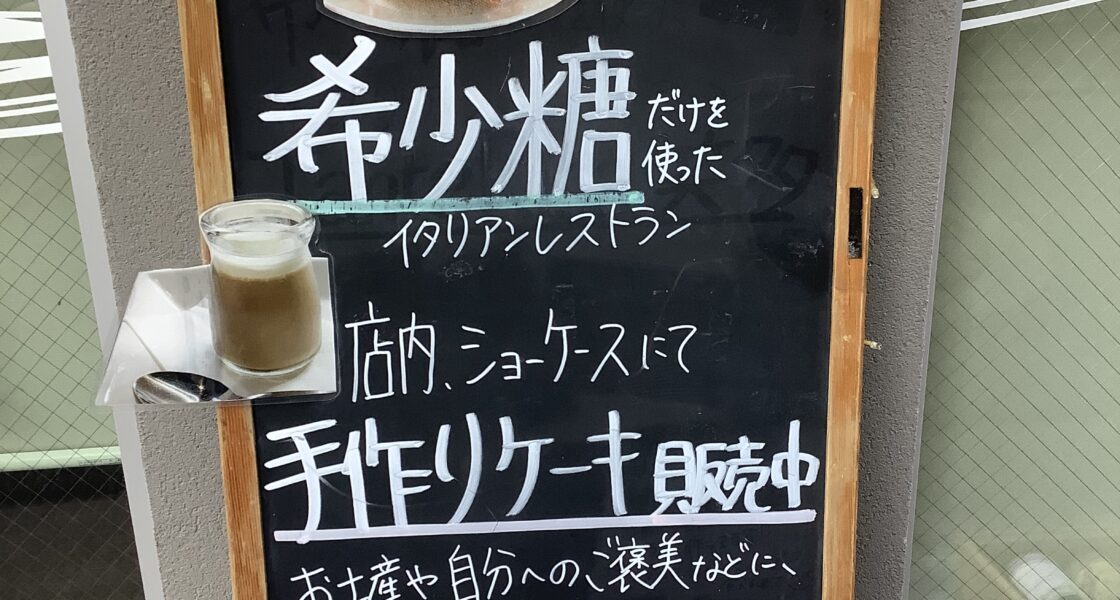 希少糖だけを
使った
イタリアンレストラン
店内、ショーケースにて
手作りケーキ販売中
お土産や自分へのご褒美などに、